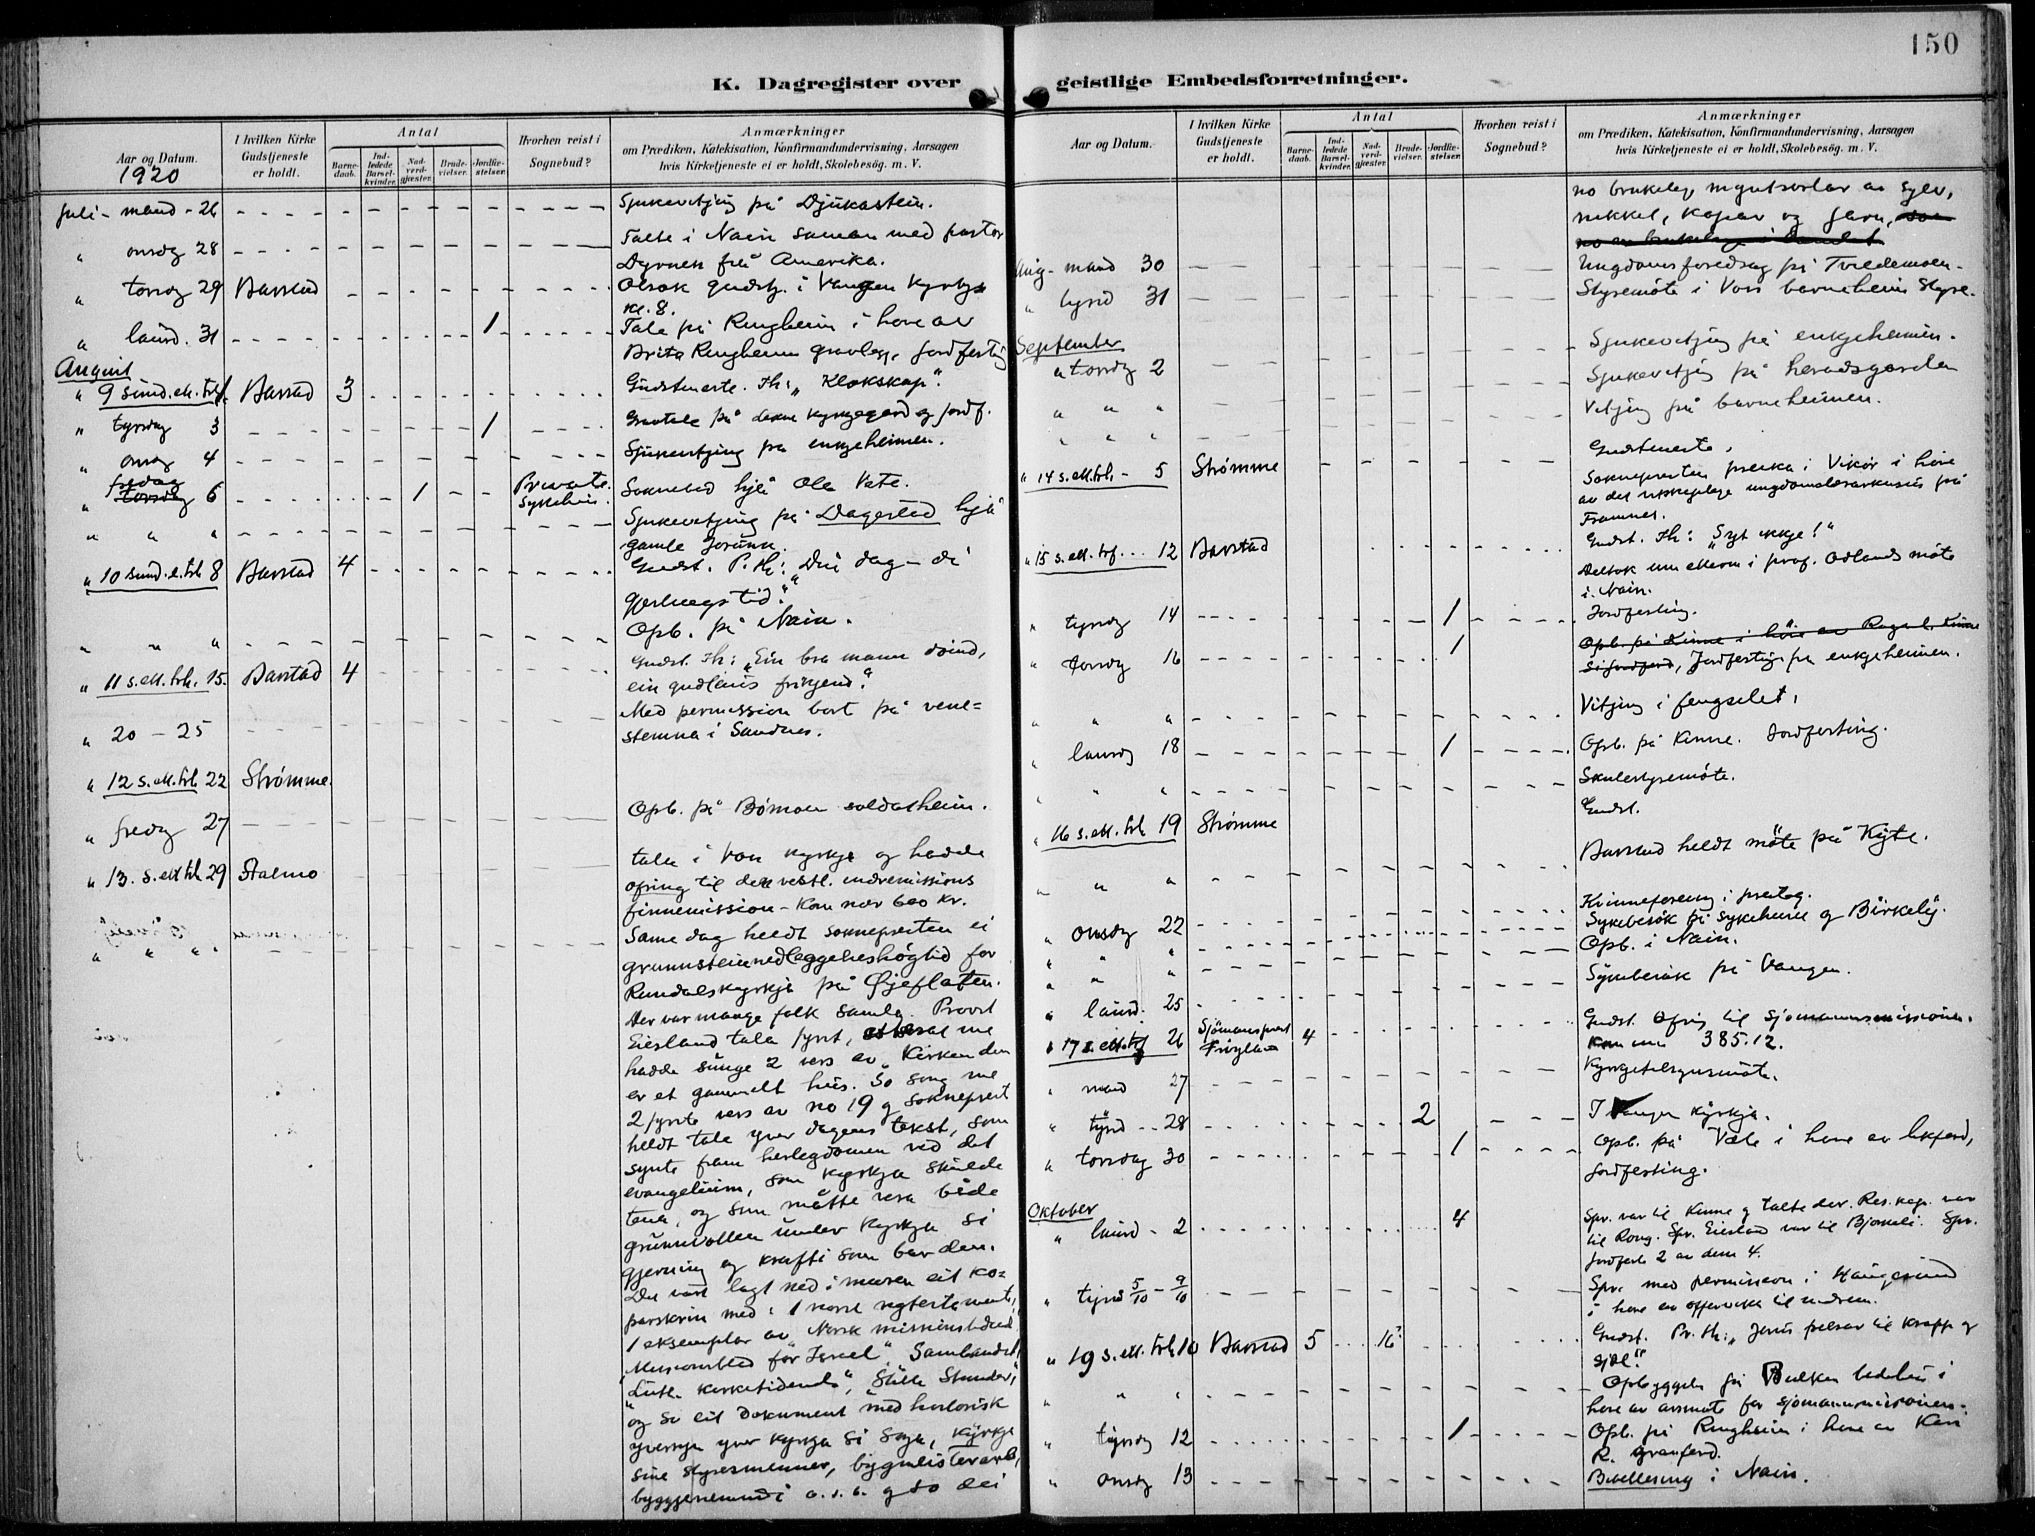 150
K. Dagregister over geistlige Embedsforretninger.
Aar og Datum.
1920
I hvilken Kirke Gudstjeneste er holdt.
Antal
Barnedaab.
Indledede Barselkvinder.
Nadverdgjæster.
Brudevielser.
Jordfæstelser.
Hvorhen reist i Sognebud?
Anmærkninger
om Prædiken, Katekisation, Konfirmandundervisning, Aarsagen
hvis Kirketjeneste ei er holdt, Skolebesøg. m. V.
Juli - mand - 26 Sjukevitjing på Djukastein.
" onsdg 28 Talte i Nain saman med pastor
Dyrnes frå Amerika.
" torsdg 29 Barstad Olsok gudstj. i Vangen Kyrkje
Kl. 8.
" laurd. 31 1 Tale på Ringheim i hove av
Brita Ringheim gravlegg, Jordfesting
August
" 9 sund. ett. trf. 1. Barstad 3 Gudsteneste. Th: "Klokskap".
" tyrsdag 3 1 Gravtale på kyrkjegard og jordf.
" onsdg 4 Sjukevitjing på enkjeheimen.
" fredag torsdag 6 1 Private Sykehus. Soknebud hjå Ole Vete.
" " " Sjukevitjing på Dagestad hjå
gamle Jorunn.
" 10 sund. e. trf. 8 Barstad 4 Gudst. P. th: "Din dag - di
gjestings tid."
" " " Opb. på Nain.
" 11 s. ett. trf. 15. Barstad 4 Gudst. Th: "Ein bra mann doind,
ein gudlaus fritjend."
" 20 - 25 Med permission bort på
stemna i Sandnes.
" 12 s. ett. trf. 22 Strømme.
" fredg 27 Opb. på Bømoen soldatheim.
" 13. s. ett trf. 29 Stalmo tala i Voss kyrkje og hadde
ofring til den vestl. indremissions
finnemission - Kom nær 600 Kr.
" " " Same dag heldt sokneprsten ei
grunnsteinnedleggelseshøgtid for
Rundalskyrkja på Øyeflaten.
Der var mange folk samla. Provst
Eiesland tala fyrst, etterat me
hadde sunge 2 vers av "Kirken den
er et gammelt hus. So song me
2 fyrste vers av no 19 og soknepresten
heldt tale yver dagens tekst, som
synte fram herlegdomen ved det
evangelium, som kyrkja skulde
tena, og som måtte vera både
grunnvollen under kyrkja si
gjerning og krafti som bar den.
Der vart lagt ned i muren eit ko=
parskrin med: 1 norsk nytestamente,
1 eksemplar av "Norsk missionstidend
Missionsblad for Israel", "Sambandet"
"Luth. Kirketidende", "Stille Stunder",
og so eit dokument med historisk
yversyn yver kyrkja si soga, kyrkje
sine styresmenner, bygmeisterar,
byggjenemndi o.s.v. og so dei
Aar og Datum.
I hvilken Kirke Gudstjeneste er holdt.
Antal
Barnedaab.
Indledede Barselkvinder.
Nadverdgjæster.
Brudevielser.
Jordfæstelser.
Hvorhen reist i Sognebud?
Anmærkninger
om Prædiken, Katekisation, Konfirmandundervisning, Aarsagen
hvis Kirketjeneste ei er holdt, Skolebesøg. m. V.
no brukeleg myntsortar av sylv,
nikkel, kopar og jarn,
Aug - mand 30 Ungdomsforedrag på Tvildemoen.
" tyrsd 31 Styremöte i Voss barneheim styre.
September
" torsdg 2 Sjukevitjing på enkjeheimen.
" " " Sjukevitjing på heradsgarden
" " " Vitjing på barneheimen.
" 14 s. ett. trf. - 5 Strømme Gudsteneste.
Soknepresten preika i Vikör i höve
av det ungdoms på
Framnes.
" 15 s. ett. trf. 12 Barstad Gudst. Th: "Syt ikkje!"
Deltok um ettern i prof. Odlands möte
i Nain.
" tyrsdg 14 1 Jordfesting.
" torsdg 16 1 Opb. på Kinne i höve av
Jordfesting fra enkjeheimen.
" " " Vitjing i fengselet.
" laurdg 18 1 Opb. på Kinne. Jordfesting.
" " " Skulestyremöte.
" 16 s. ett. trf. 19 Strømme Gudst.
" " " Barstad heldt möte på Kyte.
" onsdg 22 Kvinneforening i prestag.
" " " Sykebesök på sykeheime og Birkely.
" " " Opb. i Nain.
" laurd. 25 Sykebesök på Vangen.
" 17 s. ett. trf 26 Sjömansprest 4 Gudst. Ofring til sjömannsmissionen.
Kom inn 385.12.
" mand 27 Kyrkjetilsynsmöte.
" tyrsd 28 2 I Vangen kyrkja.
" torsdag 30 1 Opb. på Væte i hove av likferd,
Jordfesting.
Oktober
" laurd - 2 4 Spr. var til Kinne og talte der. Res. kap. var
til Rong. Spr. Eiesland var til Bjornli. Spr.
jordfest 2 av dem 4.
" tyrsd 5/10 - 9/10 Spr. med permission i Haugesund
i hove av offeruka til indrem.
" 19 s. ett. trf. 10 Barstad 5 16? Gudst. Pr. th: "Jesus frelsar til kropp og
sjæl."
" " Opbyggelse på Bulken bedehus i
hove av arsmöte for sjömannsmissionen.
" tyrsdg 12 1 Opb. på Ringheim i hove av Kari
R. gravferd.
" onsdg 13 Bibellesning i Nain.